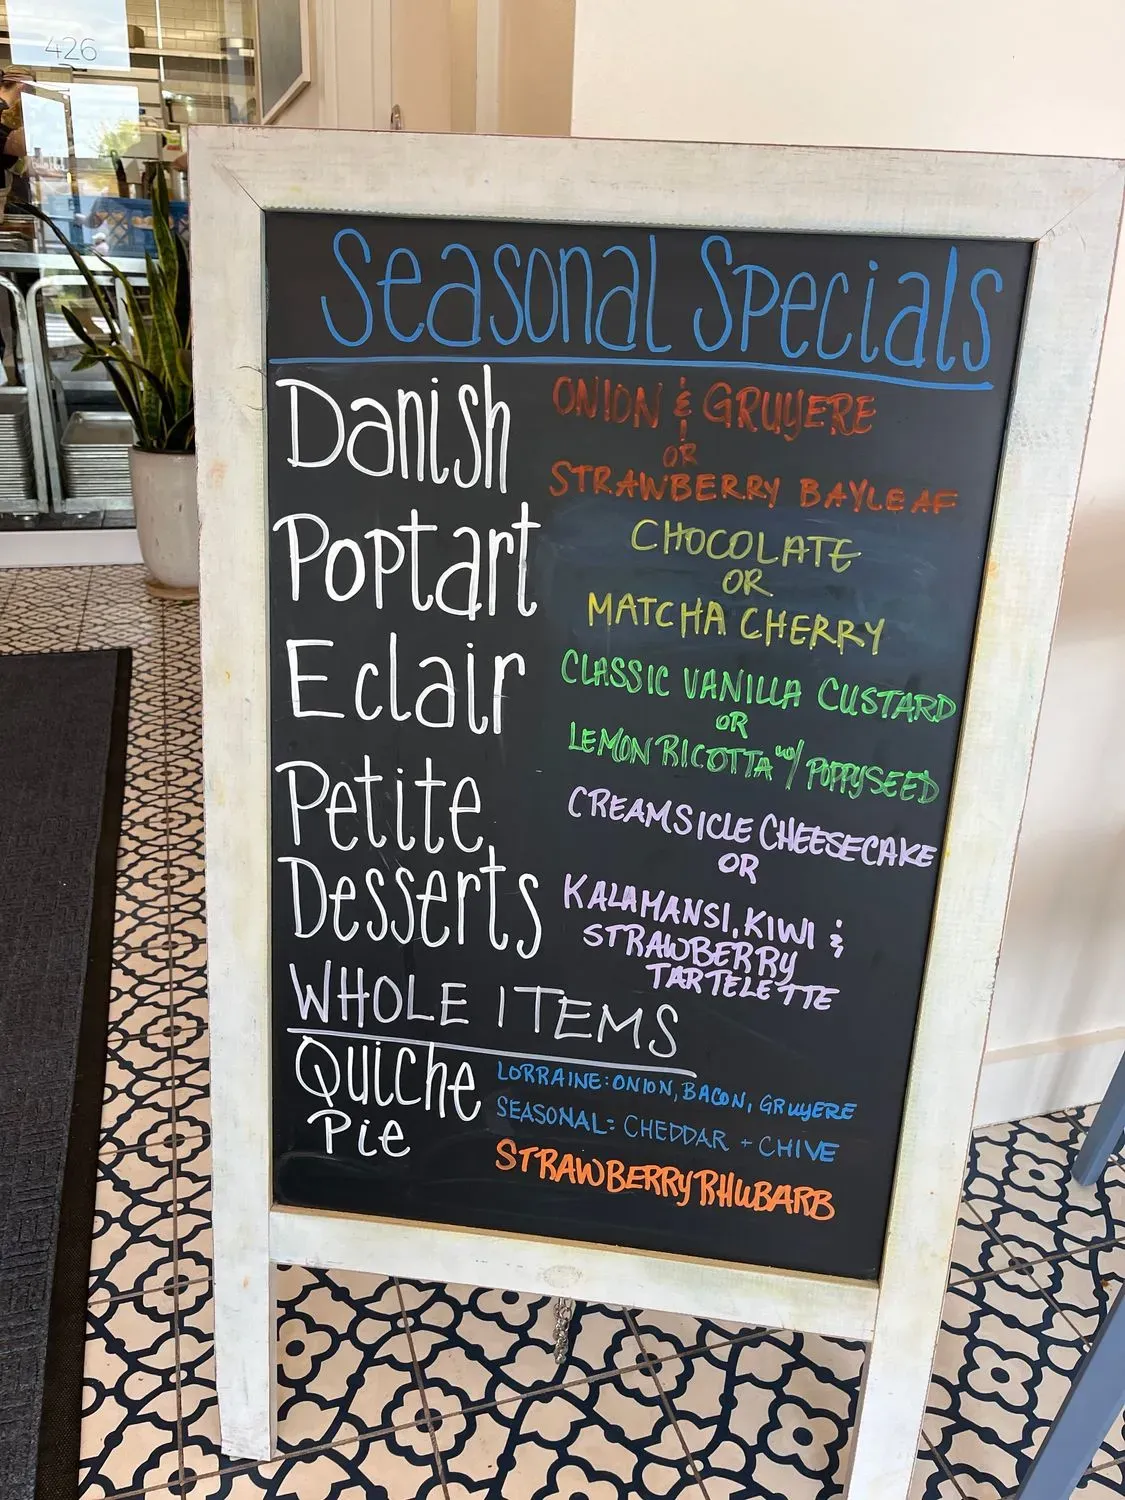 426
Seasonal Specials
Danish
ONION & GRUYERE
OR
STRAWBERRY BAYLEAF
Poptart
CHOCOLATE
OR
MATCHA CHERRY
Eclair
CLASSIC VANILLA CUSTARD
OR
LEMON RICOTTA w/ POPPYSEED
Petite
Desserts
CREAMSICLE CHEESECAKE
OR
KALAMANSI, KIWI &
STRAWBERRY
TARTELETTE
WHOLE ITEMS
Quiche
LORRAINE: ONION, BACON, GRUYERE
SEASONAL: CHEDDAR + CHIVE
Pie
STRAWBERRY RHUBARB